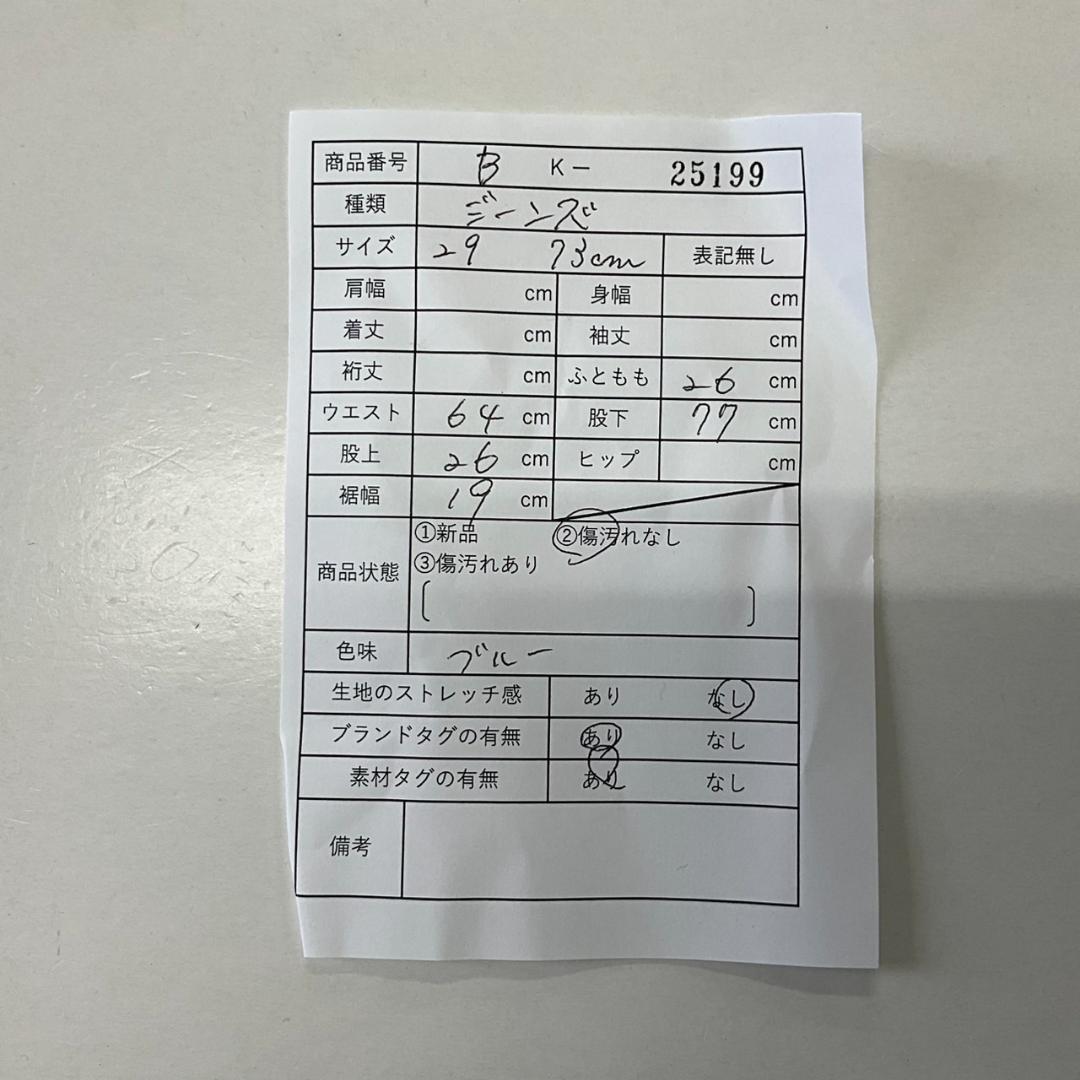 商品番号 B K- 25199
種類 ジーンズ
サイズ 29 73cm 表記無し
肩幅 cm 身幅 cm
着丈 cm 袖丈 cm
裄丈 cm ふともも 26 cm
ウエスト 64 cm 股下 77 cm
股上 26 cm ヒップ cm
裾幅 19 cm
商品状態 ①新品 ②傷汚れなし
③傷汚れあり
〔 〕
色味 ブルー
生地のストレッチ感 あり なし
ブランドタグの有無 あり なし
素材タグの有無 あり なし
備考